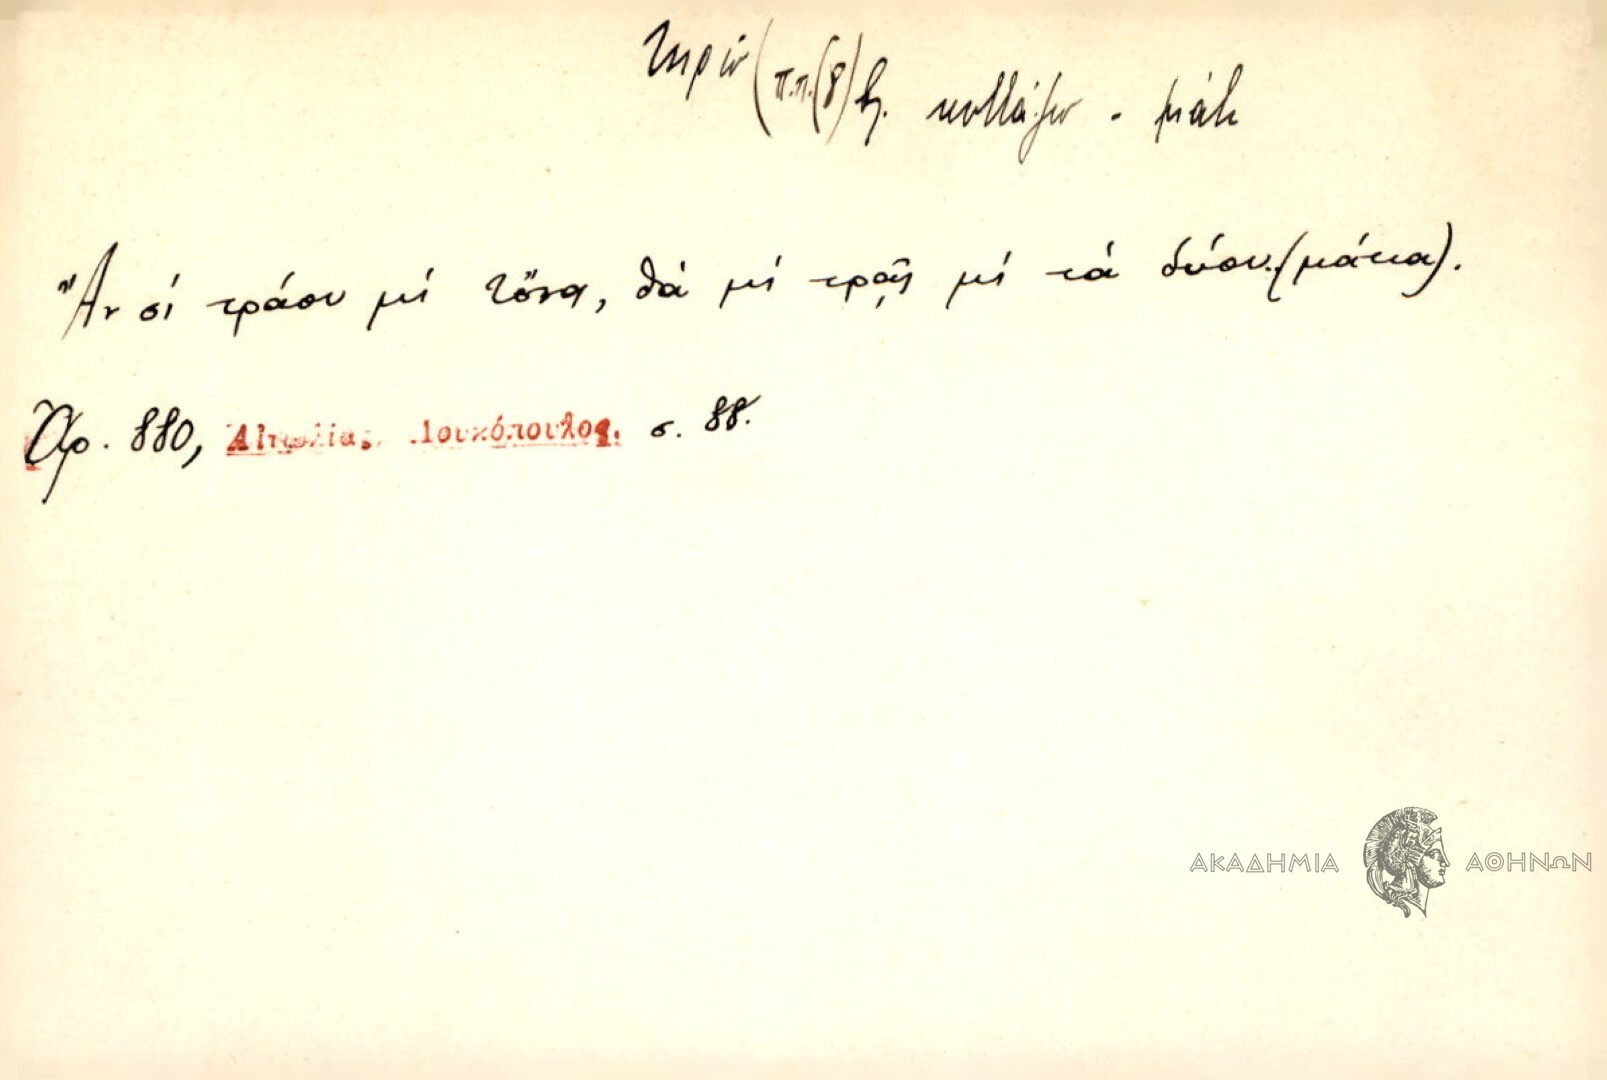 τηρώ (π.π. (8) βλ. κυττάζω - μάτι
Ἄν σί τράου μί τὄνα, θά μί τρᾷς μί τά δύου. (μάτια).
Ἀρ. 880, Αἰτωλίας, Λουκόπουλος. σ. 88.
ΑΚΑΔΗΜΙΑ ΑΘΗΝΩΝ